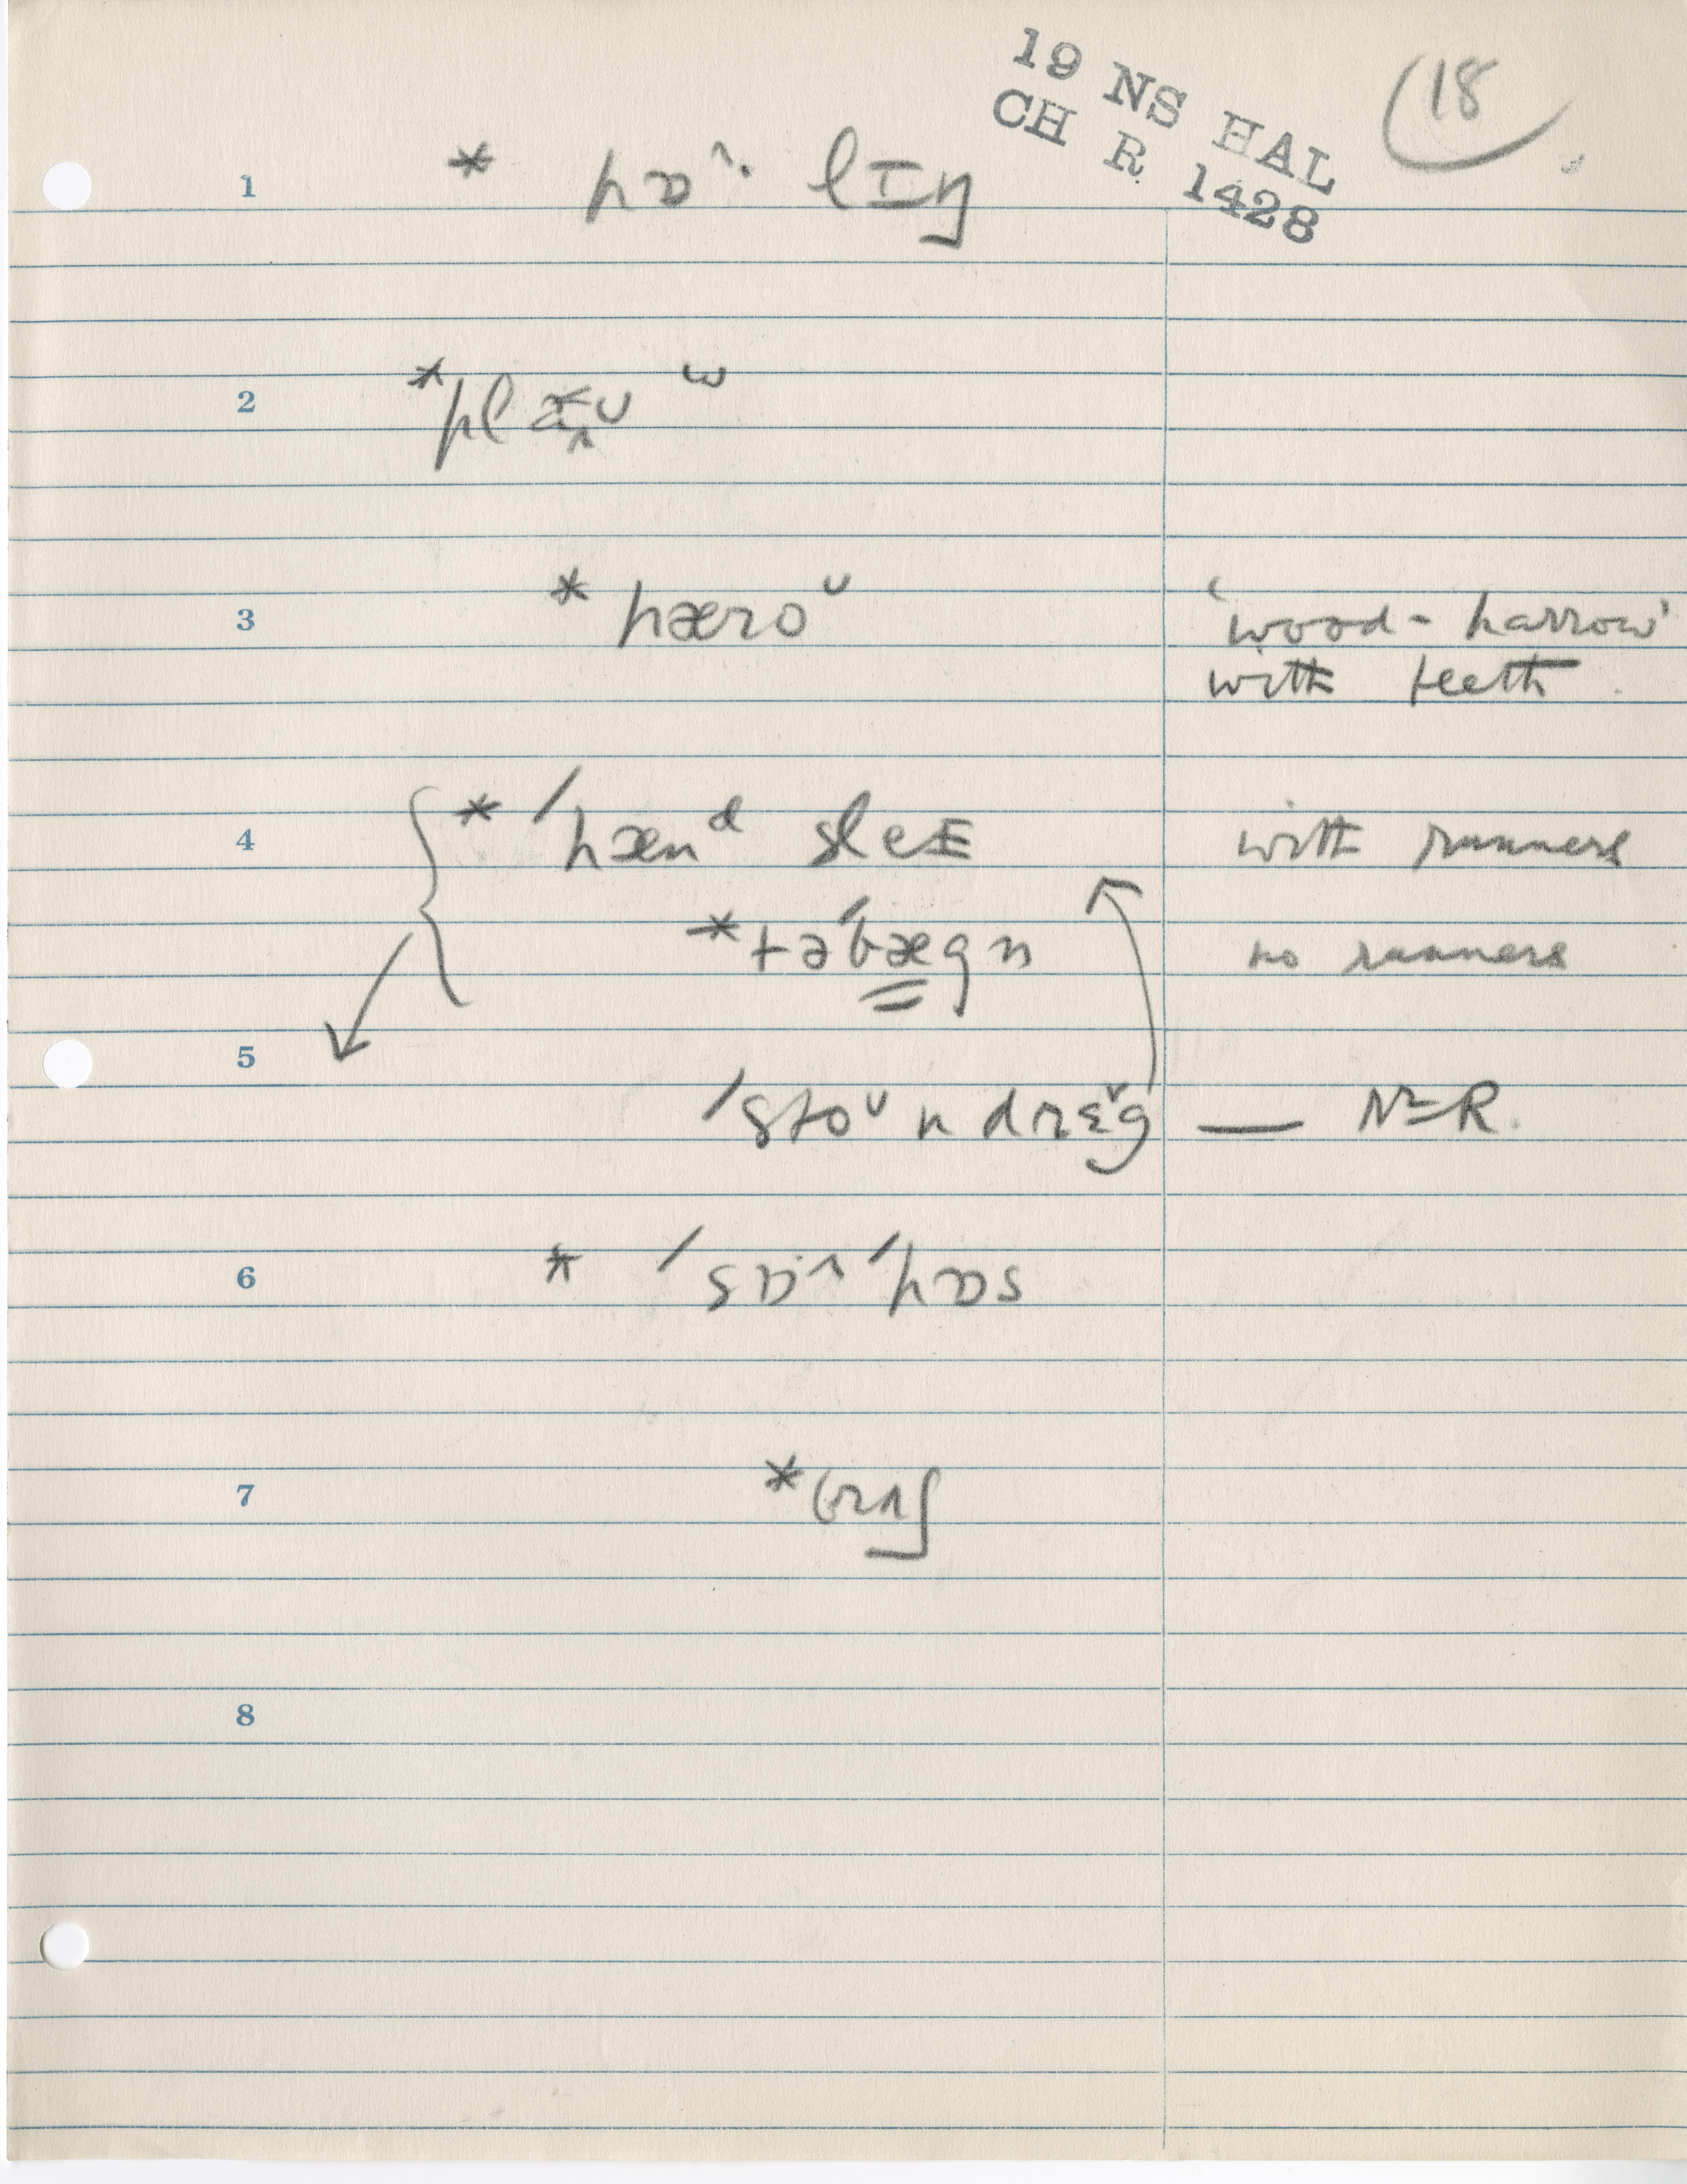 19 NS HAL
CH R 1428
18
1 * hɒ˄· lɪŋ
2 *plæ̬u ω
3 * hæro ᵕ 'wood-harrow'
with teeth
4 * ˈhænᵈ sleɪ with runners
*təˈbægn no runners
5 ˈstoᵕn drɛ˅g — Nᵒ R.
6 * ˈsɒ·˄ˌhɒs
7 *brʌʃ
8